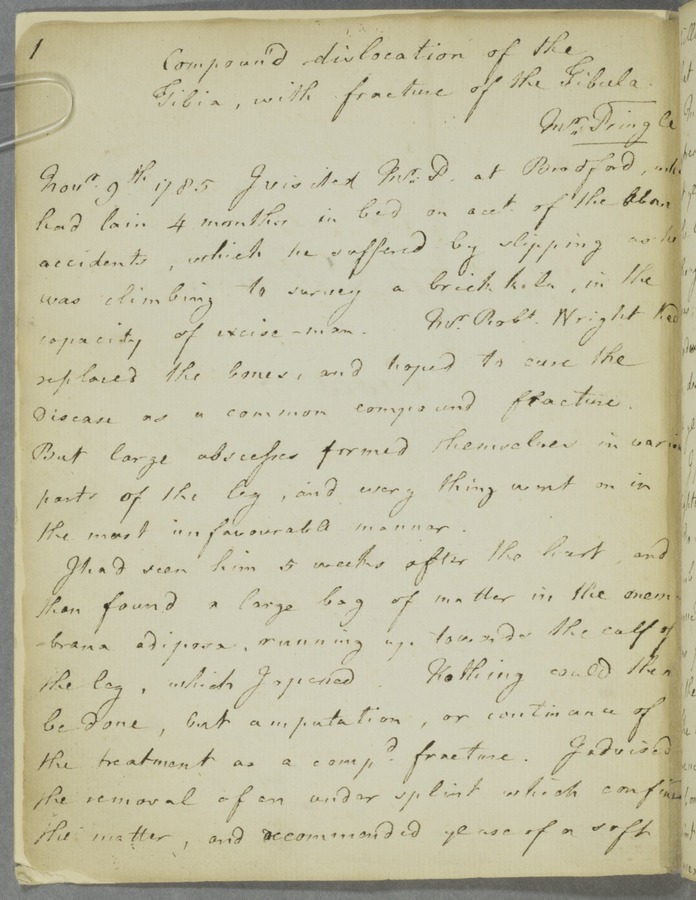 1
Compound dislocation of the
Tibia, with fracture of the Fibula.
Mr. Pringle
Novr. 9th 1785 I visited Mr. P. at Bradford, who
had lain 4 months in bed on acct. of the above
accidents, which he suffered by slipping as he
was climbing to survey a brick kiln, in the
capacity of excise-man. Mr. Robt. Wright had
replaced the bones, and hoped to cure the
Disease as a common compound fracture.
But large abscesses formed themselves in various
parts of the leg, and every thing went on in
the most unfavourable manner.
I had seen him 5 weeks after the hurt, and
then found a large bag of matter in the mem-
-brana adiposa, running up towards the calf of
the leg, which I opened. Nothing could then
be done, but amputation, or continuance of
the treatment as a compd. fracture. I advised
the removal of an under splint which confined
the matter, and recommended ye use of a soft